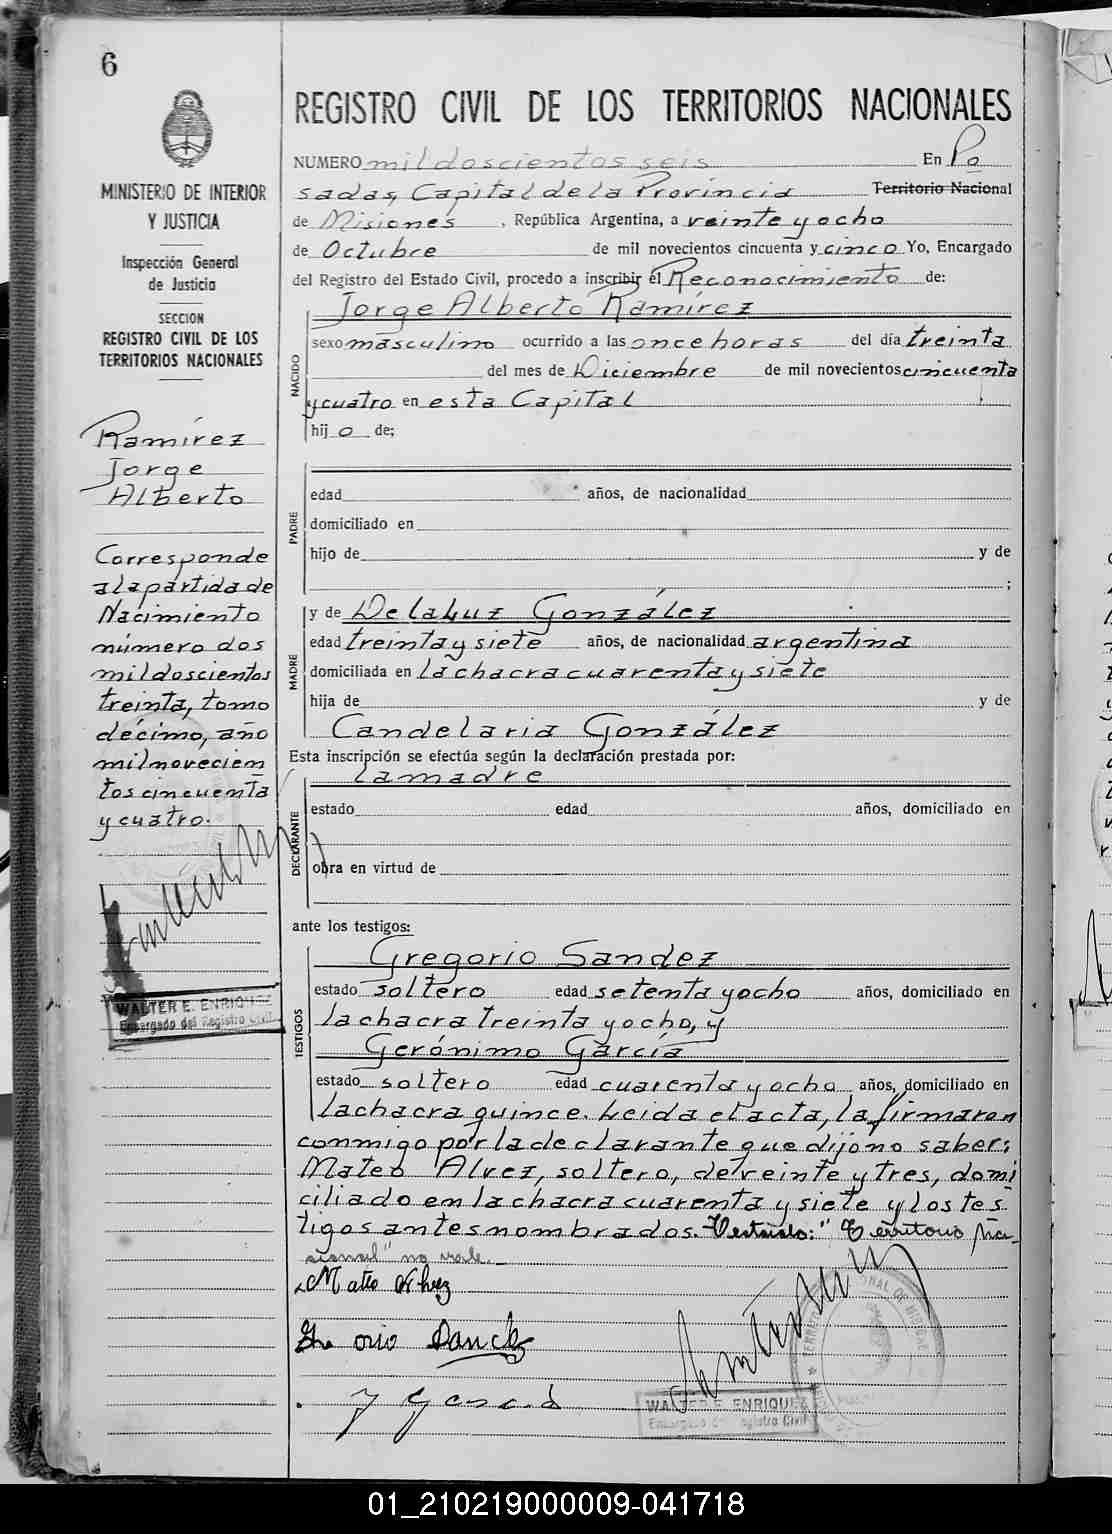 6
MINISTERIO DE INTERIOR
Y JUSTICIA
Inspección General
de Justicia
SECCION
REGISTRO CIVIL DE LOS
TERRITORIOS NACIONALES
Ramírez
Jorge
Alberto
Corresponde
a la partida de
Nacimiento
número dos
mil doscientos
treinta, tomo
décimo, año
mil novecien
tos cincuenta
y cuatro.
WALTER E. ENRIQUEZ
Encargado del Registro Civil
REGISTRO CIVIL DE LOS TERRITORIOS NACIONALES
NUMERO mil doscientos seis En Po
sadas, Capital de la Provincia Territorio Nacional
de Misiones, República Argentina, a veinte y ocho
de Octubre de mil novecientos cincuenta y cinco Yo, Encargado
del Registro del Estado Civil, procedo a inscribir el Reconocimiento de:
Jorge Alberto Ramírez
NACIDO
sexo masculino ocurrido a las once horas del día treinta
del mes de Diciembre de mil novecientos cincuenta
y cuatro en esta Capital
hijo de;
PADRE
edad años, de nacionalidad
domiciliado en
hijo de y de
;
MADRE
y de De la Luz González
edad treinta y siete años, de nacionalidad argentina
domiciliada en la chacra cuarenta y siete
hija de y de
Candelaria González
Esta inscripción se efectúa según la declaración prestada por:
la madre
DECLARANTE
estado edad años, domiciliado en
obra en virtud de
ante los testigos:
TESTIGOS
Gregorio Sandez
estado soltero edad setenta y ocho años, domiciliado en
la chacra treinta y ocho, y
Gerónimo García
estado soltero edad cuarenta y ocho años, domiciliado en
la chacra quince. Leida el acta, la firmaron
conmigo por la declarante que dijo no saber:
Mateo Alvez, soltero, de veinte y tres, domi
ciliado en la chacra cuarenta y siete y los tes
tigos antes nombrados. Testado: "Territorio Na-
cional" no vale.
Mateo Alvez
WALTER E. ENRIQUEZ
Encargado del Registro Civil
01_210219000009-041718